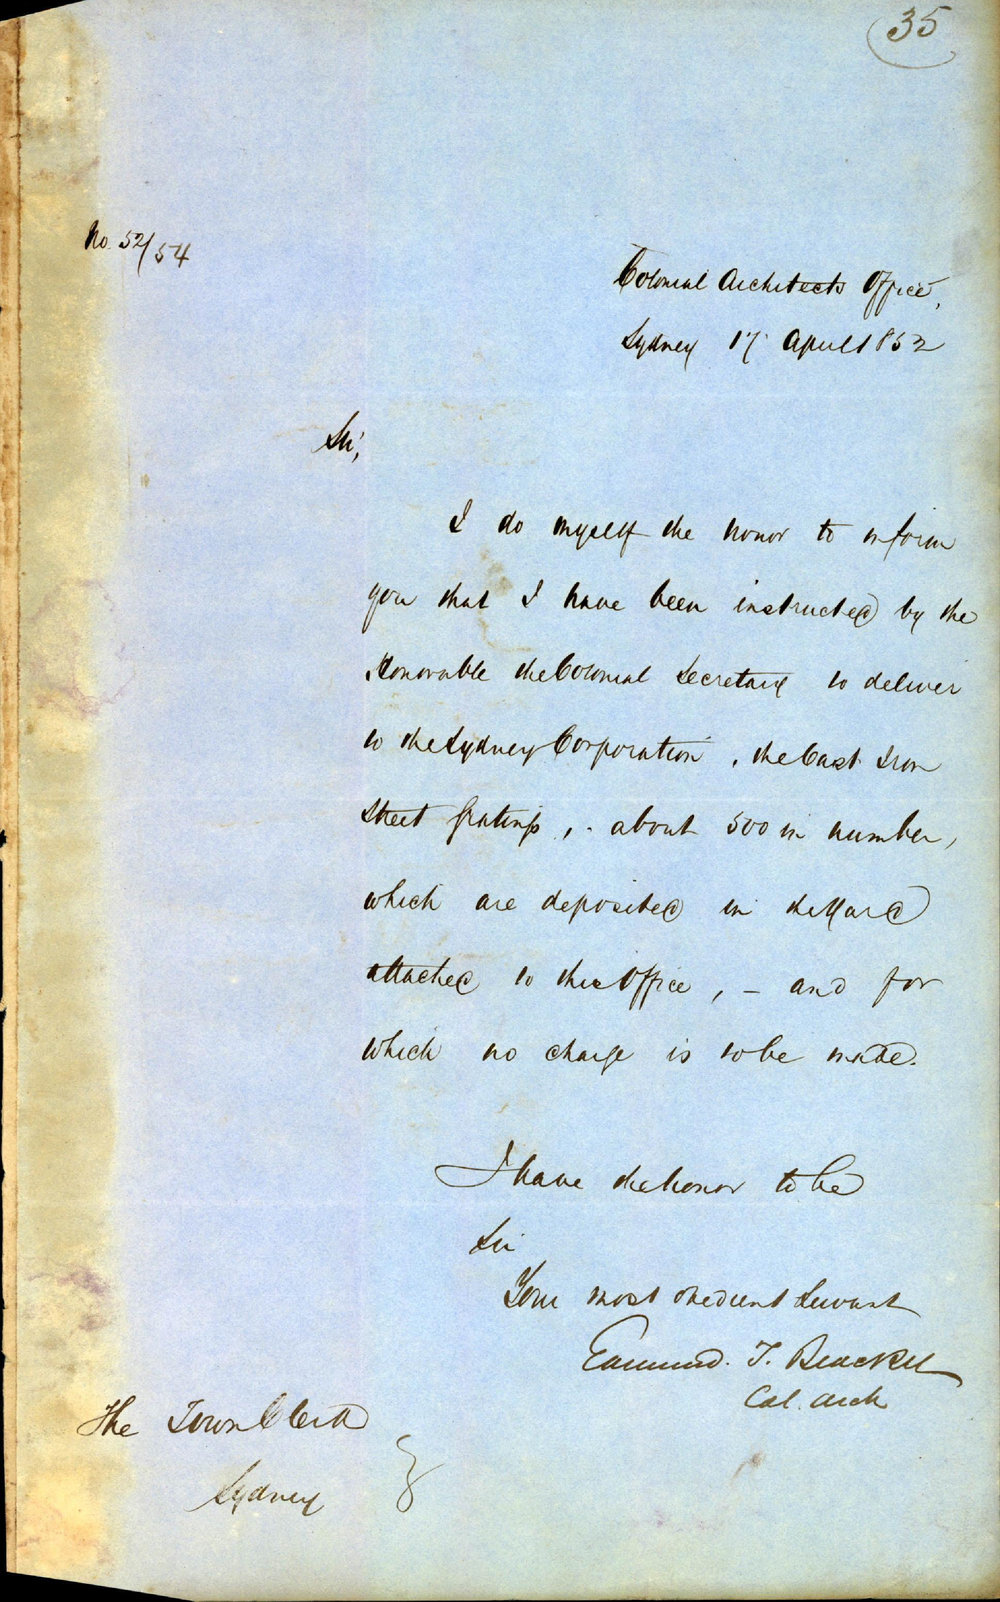 35
No. 52/54
Colonial Architects Office,
Sydney 17 April 1852
Sir,
I do myself the honor to inform
you that I have been instructed by the
Honorable the Colonial Secretary to deliver
to the Sydney Corporation, the Cast Iron
Street Gratings, - about 500 in number,
which are deposited in the Yard
attached to this Office, - and for
which no charge is to be made.
I have the honor to be
Sir
Your most obedient Servant
Edmund T. Blacket
Col. Arch
The Town Clerk
Sydney